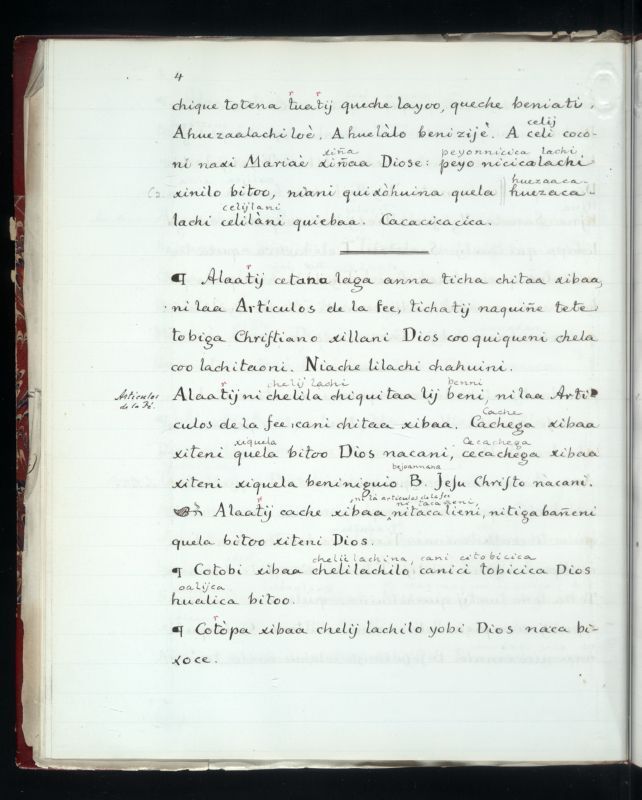 4
chique totena tuatij queche layoo, queche beniati.
r r
Ahuezaalachiloè. Ahuelàlo benizijè. A celi coco-
celij
ni naxi Mariaè xiñaa Diose: peyo nicicalachi
xiña peyonnicica lachi
xinilo bitoo, niani quixòhuina quela || huezaca
huezaaca-
lachi celilàni quiebaa. Cacacicacica.
celijlani
¶ Alaatij cetana laga anna ticha chitaa xibaa,
r
ni laa Artículos de la fee, tichatij naquiñe tete
tobiga Christiano xillani Dios coo quiqueni chela
coo lachitaoni. Niache lilachi chahuini.
Artículos
de la Fé.
Alaatij ni chelila chiquitaa lij beni, ni laa Arti-
r chelij lachi benni
culos de la fee: cani chitaa xibaa. Cachega xibaa
Cache
xiteni quela bitoo Dios nacani, cecachega xibaa
xiquela Cecachega
xiteni xiquela beniniguio B. Jesu Christo nàcani.
bejoannana
Alaatij cache xibaa nitacalieni, nitigabañeni
r ni la articulos de la fee ni tacaqieni,
quela bitoo xiteni Dios.
¶ Cotobi xibaa chelilachilo canici tobicica Dios
chelii lachina, cani citobicica
hualica bitoo.
oalijca
¶ Cotòpa xibaa chelij lachilo yobi Dios naca bi-
r
xoce.